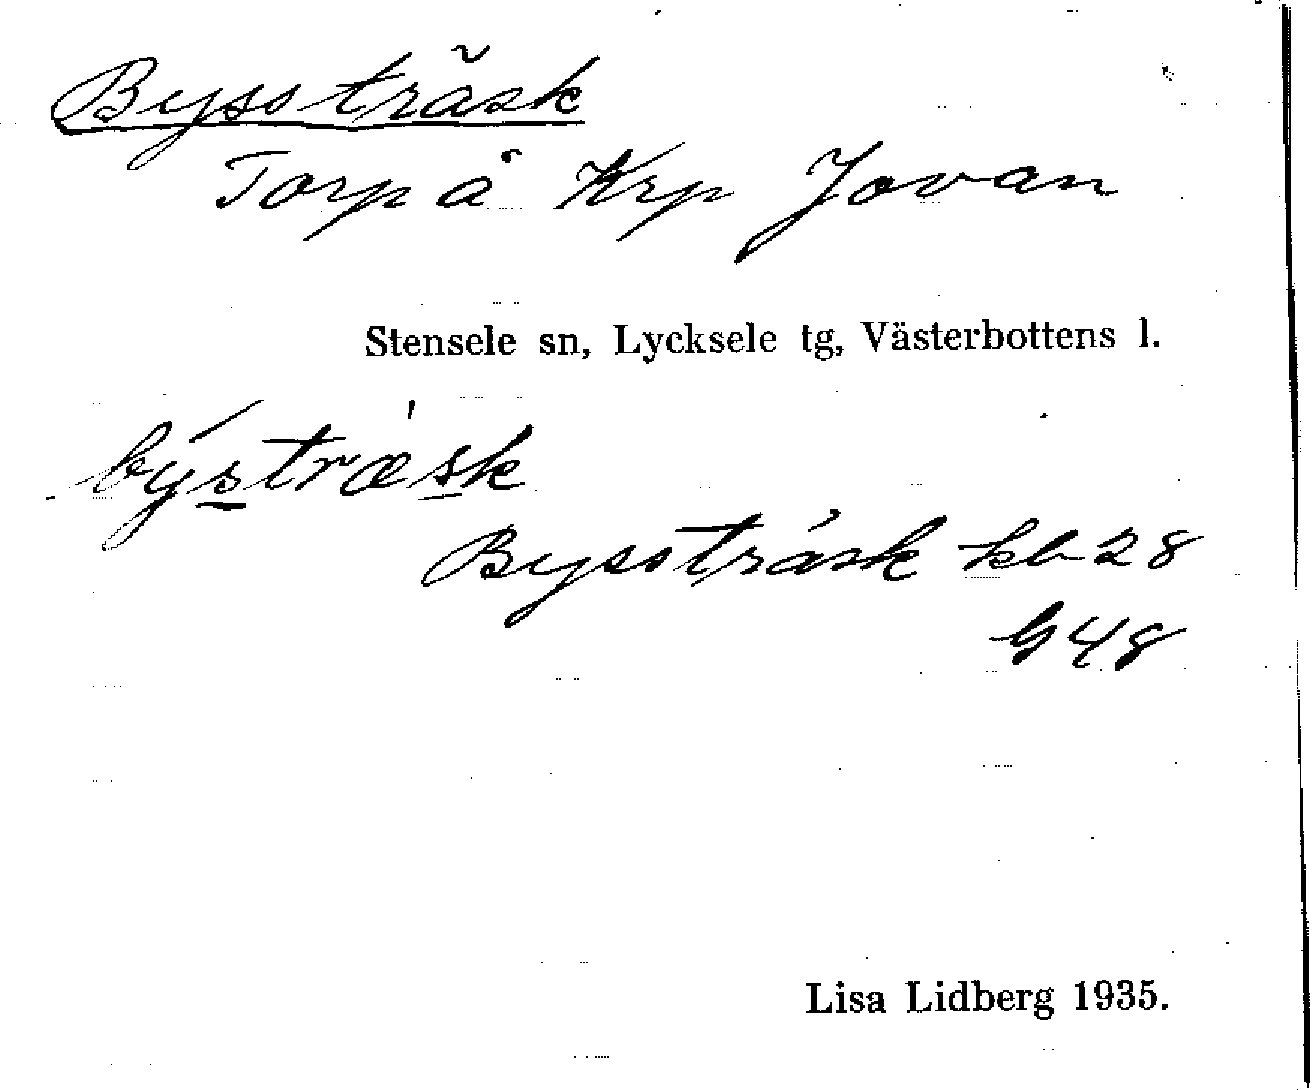 Byssträsk
Torp å Krp Jovan
Stensele sn, Lycksele tg, Västerbottens l.
býstræ'sk
Byssträsk kb 28
G48
Lisa Lidberg 1935.